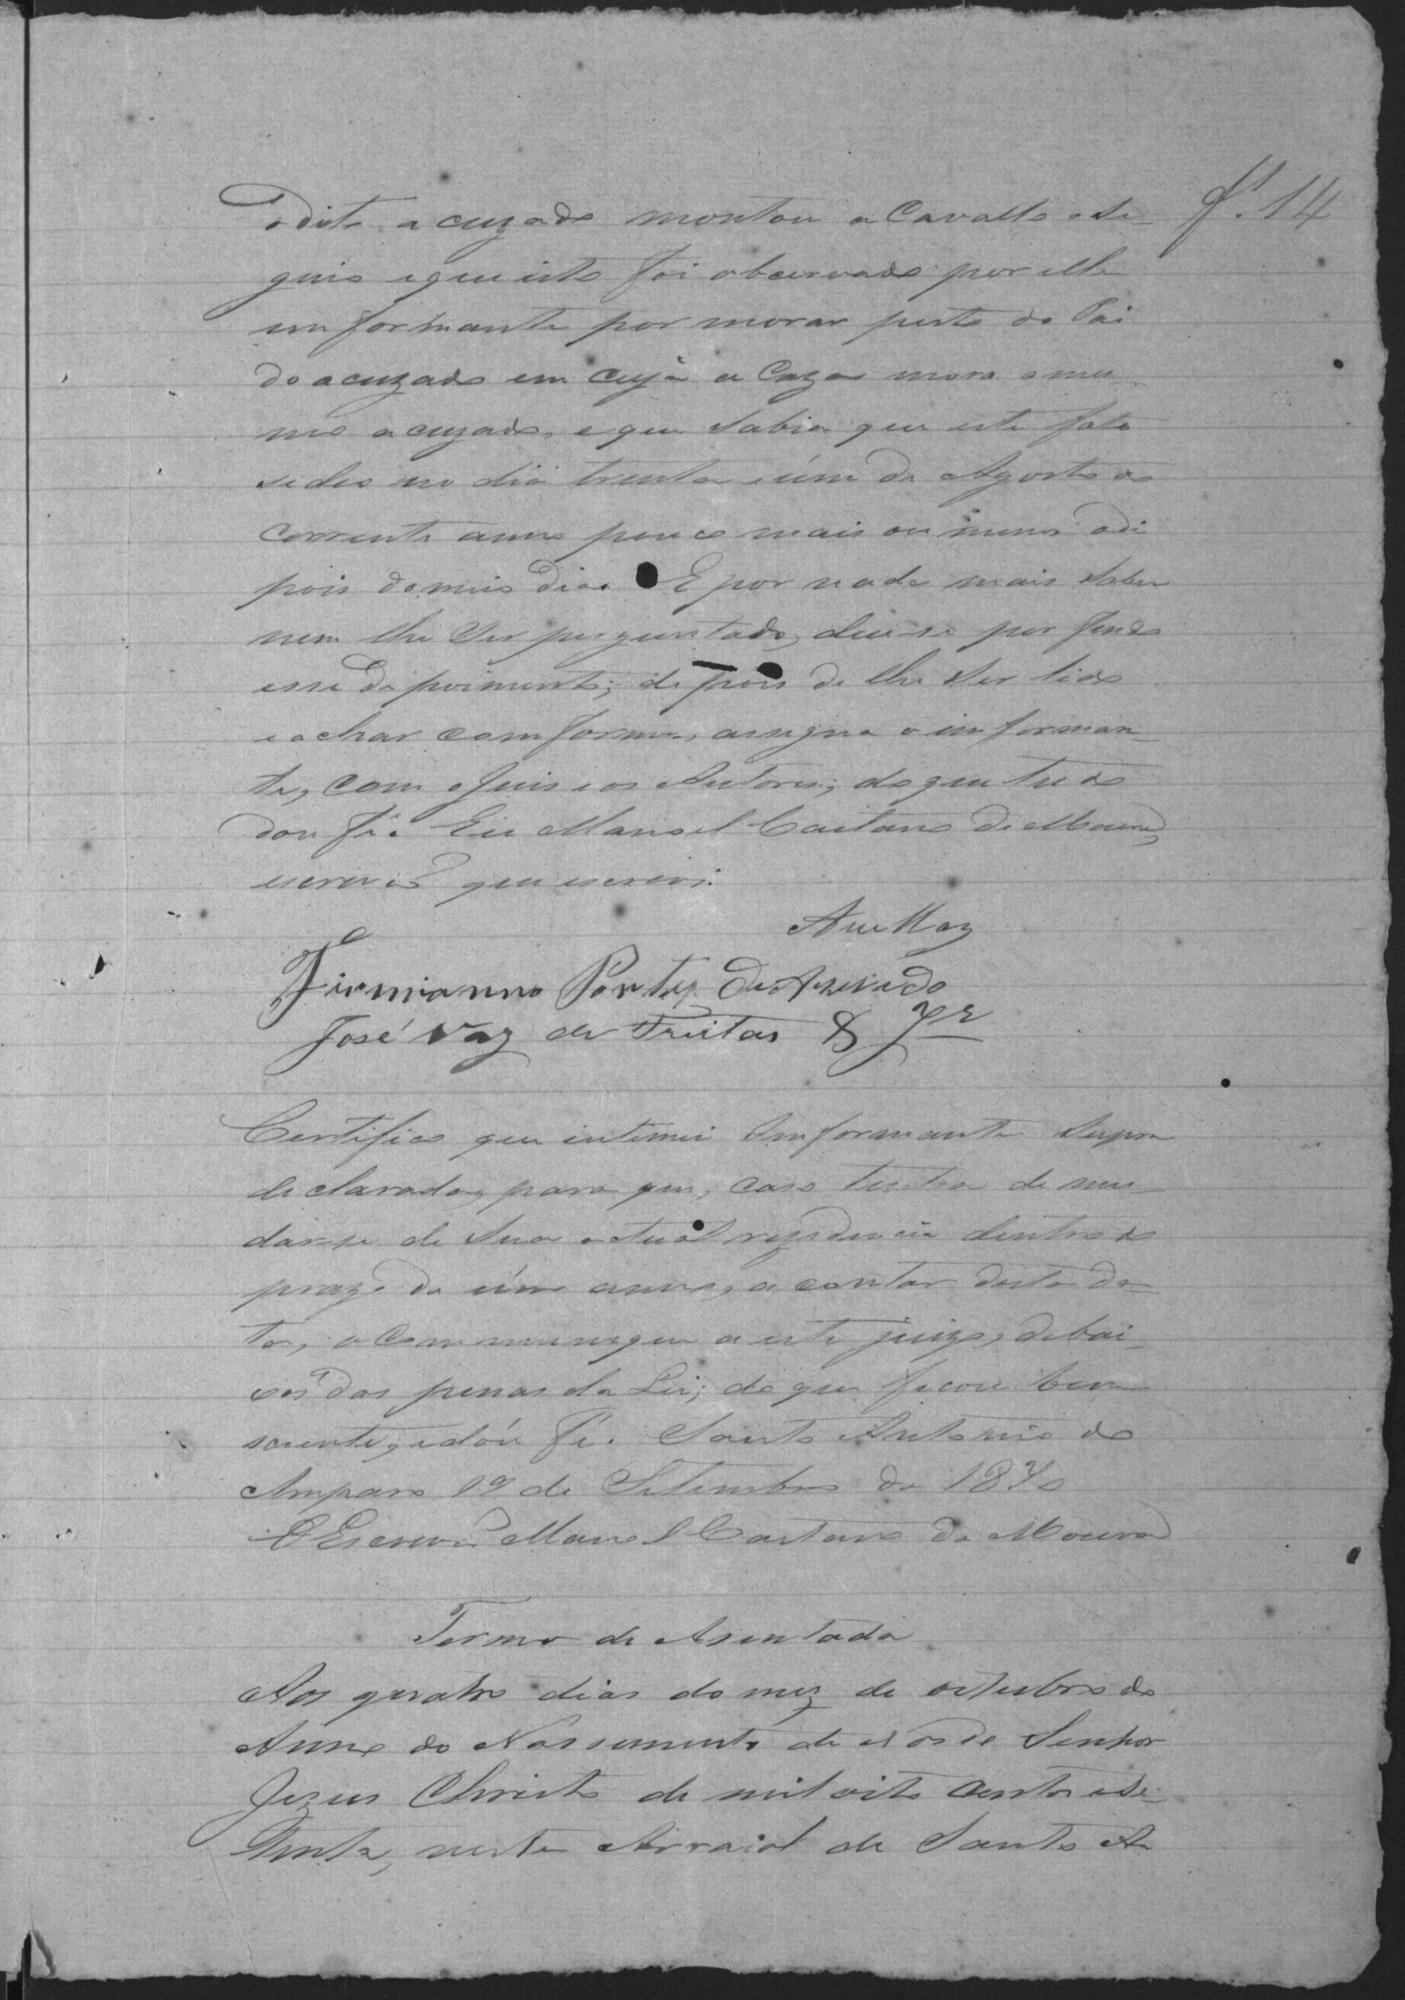 f. 14
o dito acuzado montou a Cavallo e se-
guio e que isto foi observado por elle
imformante por morar perto do Pai
do acuzado em cuja a Caza mora o mes-
mo acuzado, e que sabia que este fato
se deo no dia trenta e úm de Agosto do
corrente anno pouco mais ou menos a de
pois do meio dia. E por nada mais saber
nem lhe ser perguntado, deu-se por findo
esse depoimento; depois de lhe ser lido
e achar comforme, assigna o imforman-
te, com o Juis e os Autores; do que tudo
dou fé. Eu Manoel Caetano de Moura,
escrivão que escrevi.
Firmianno Pontes de Azevedo
José Vaz de Freitas & Jor
Certifico que intimei Imformante supra
declarado, para que, caso tenha de mu-
dar-se de sua actual rezidencia dentro do
prazo de úm anno, a contar desta da-
ta, o communique a este juizo, debai-
xo das penas da Lei; do que ficou bem
sciente, e dou fé. Santo Antonio do
Amparo 19 de Setembro de 1870
O Escrivão Manoel Caetano de Moura
Termo de Asentada
Aos quatro dias do mez de octubro do
Anno do Nassimento de Nosso Senhor
Jezus Christo de mil oito centos e se-
tenta, neste Arraial de Santo An